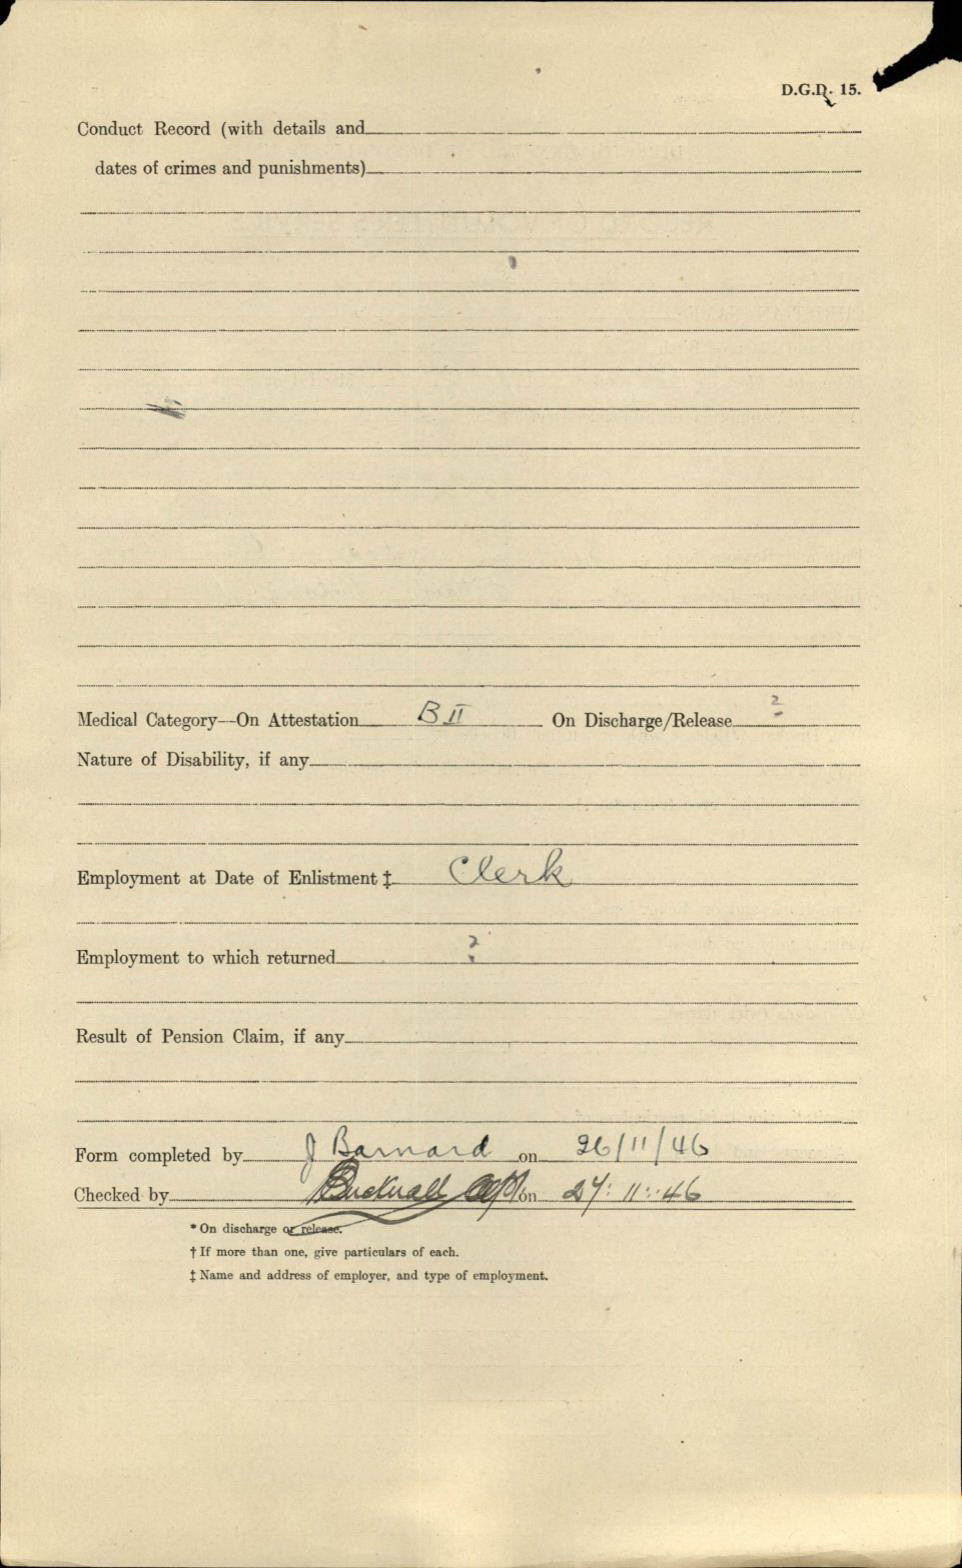 D.G.D. 15.
Conduct Record (with details and
dates of crimes and punishments)
Medical Category—On Attestation B II On Discharge/Release ?
Nature of Disability, if any
Employment at Date of Enlistment ‡ Clerk
Employment to which returned ?
Result of Pension Claim, if any
Form completed by J Barnard on 26/11/46
Checked by Bucknall on 27:11:46
* On discharge or release.
† If more than one, give particulars of each.
‡ Name and address of employer, and type of employment.